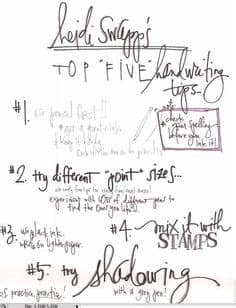 heidi swapp's
TOP "FIVE" handwriting
tips.
#1. use pencil first!!
* check
your spelling
before you
ink it!
#2. try different "point" sizes...
experiment with lots of different pens to
find the ones you like!
#3. use black ink.
write on lighter paper.
#4. mix it with
STAMPS
#5. try shadowing
with a grey pen!
practice, practice!